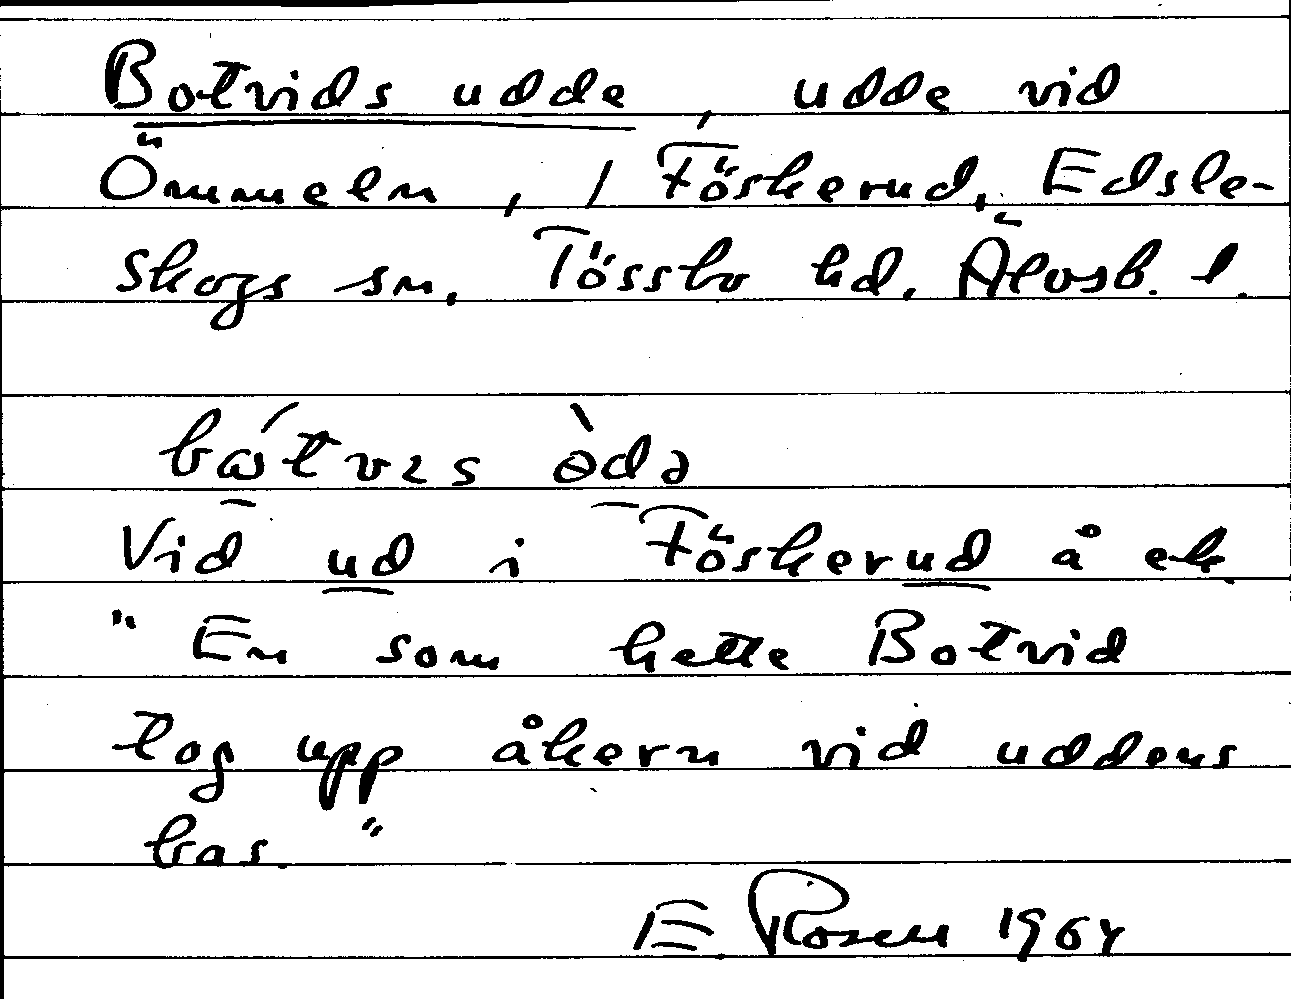 Botvids udde, udde vid
Ömmeln, / Föskerud, Edsle-
skogs sn. Tössbo hd. Älvsb. l.
bó̵tvɩs ɵ̀də
Vid ud i Föskerud å ek.
"En som hette Botvid
tog upp åkern vid uddens
bas."
E. Rosen 1964